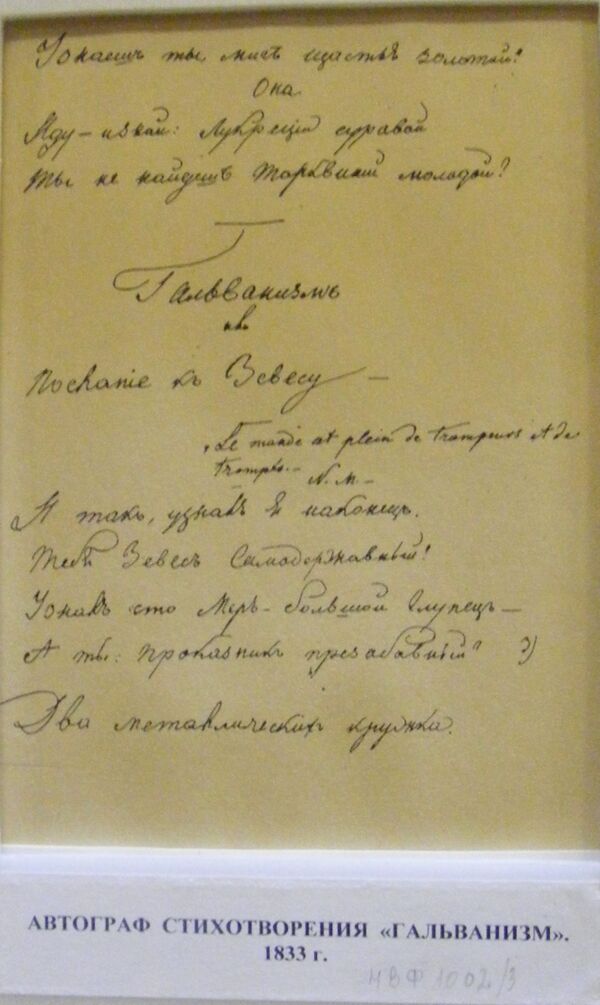 Узнаешь ты мигъ щастья золотой!
Она
Жду – изволь: Лукреціи суровой
Ты не найдешь Тарквиній молодой?
Гальванизмъ
или
Посланіе къ Зевесу –
„Le monde est plein de trompeurs et de
trompés. –
N. N. –
И такъ, узналъ я наконецъ.
Тебя Зевесъ Самодержавный!
Узналъ что Міръ – большой глупецъ –
А ты: проказникъ презабавный
Два металлическихъ кружка.
АВТОГРАФ СТИХОТВОРЕНИЯ «ГАЛЬВАНИЗМ».
1833 г.
НВФ 1002/3